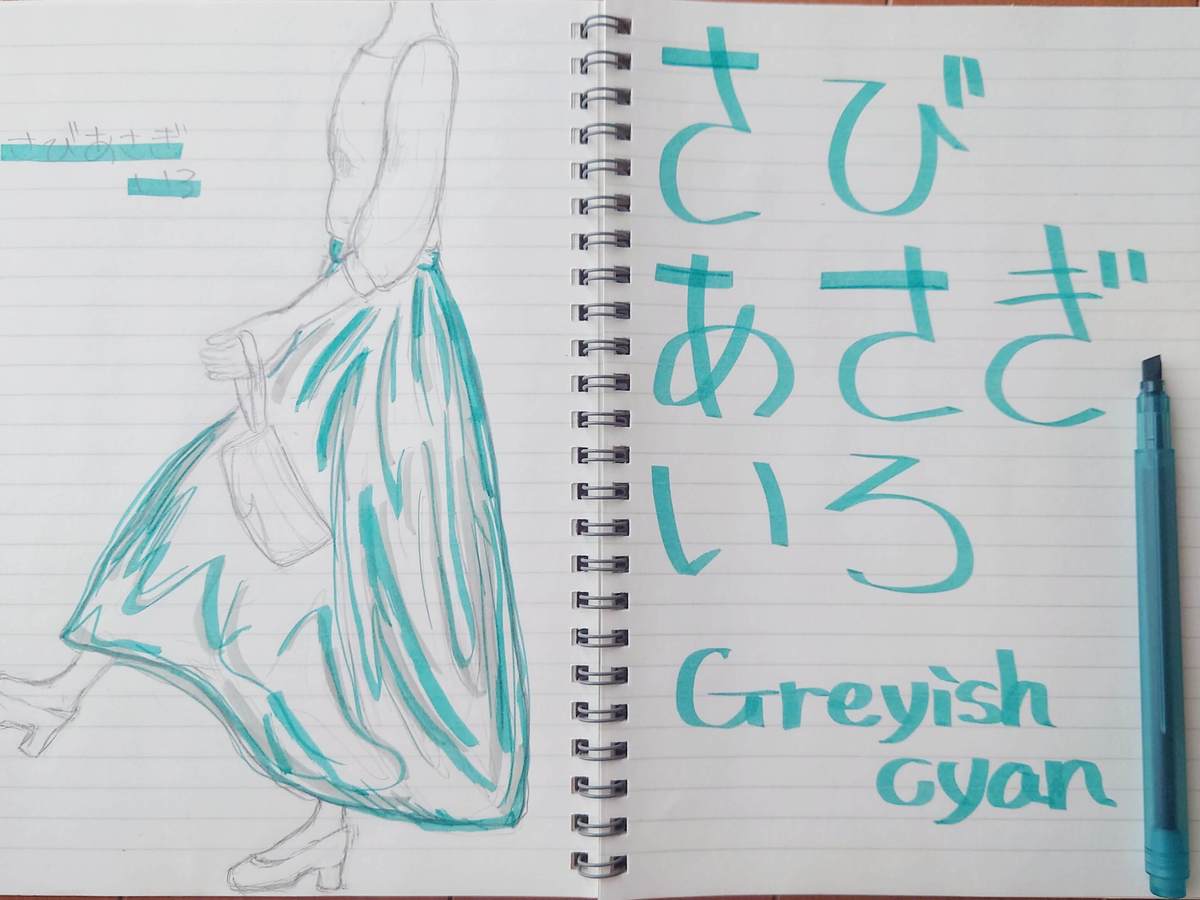 さびあさぎ
いろ
さび
あさぎ
いろ
Greyish
cyan